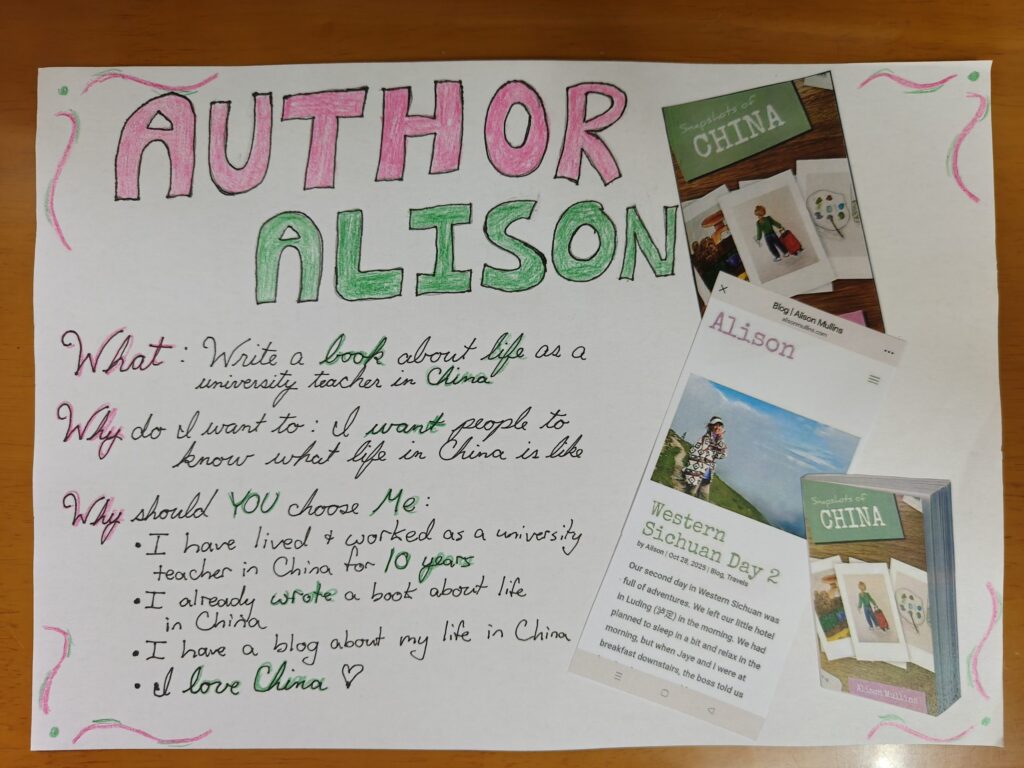 AUTHOR
ALISON
What: Write a book about life as a
university teacher in China
Why do I want to: I want people to
know what life in China is like
Why should YOU choose Me:
• I have lived & worked as a university
teacher in China for 10 years
• I already wrote a book about life
in China
• I have a blog about my life in China
• I love China ♡
Snapshots of
CHINA
Blog | Alison Mullins
alisonmullins.com
Alison
Western
Sichuan Day 2
by Alison | Oct 28, 2025 | Blog, Travels
Our second day in Western Sichuan was
full of adventures. We left our little hotel
in Luding (泸定) in the morning. We had
planned to sleep in a bit and relax in the
morning, but when Jaye and I were at
breakfast downstairs, the boss told us
Snapshots of
CHINA
Alison Mullins